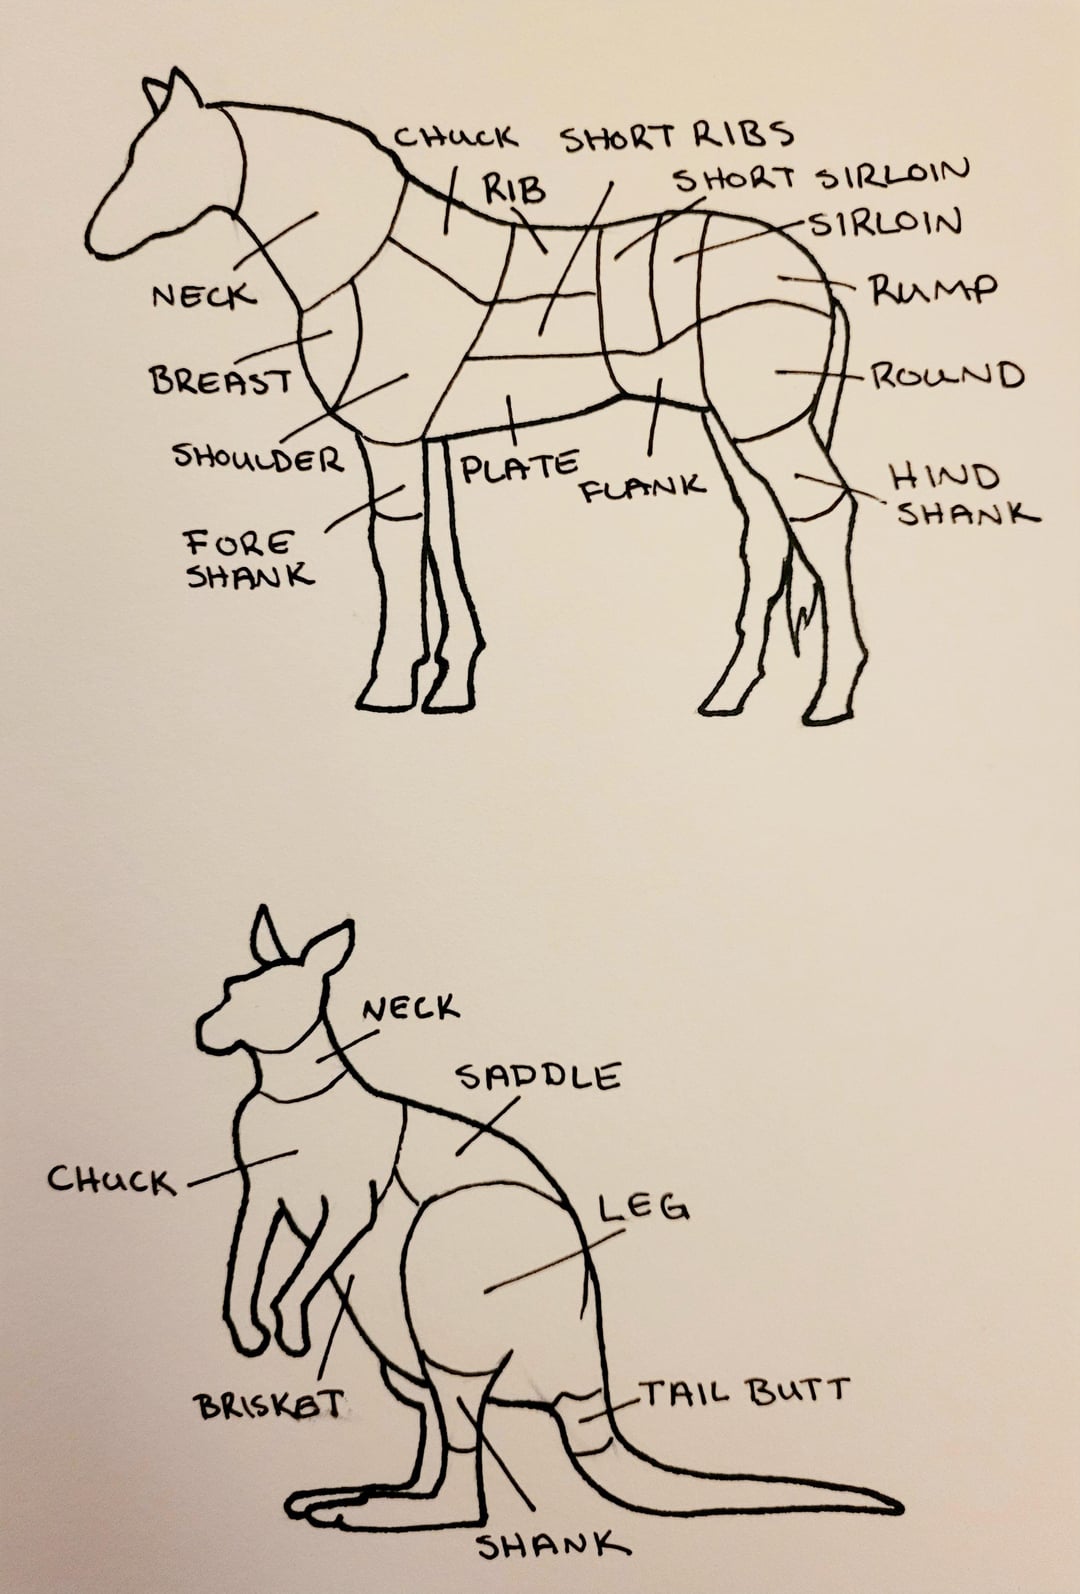 CHUCK
SHORT RIBS
RIB
SHORT SIRLOIN
SIRLOIN
NECK
RUMP
BREAST
ROUND
SHOULDER
PLATE
FLANK
HIND
SHANK
FORE
SHANK
NECK
SADDLE
CHUCK
LEG
BRISKET
TAIL BUTT
SHANK